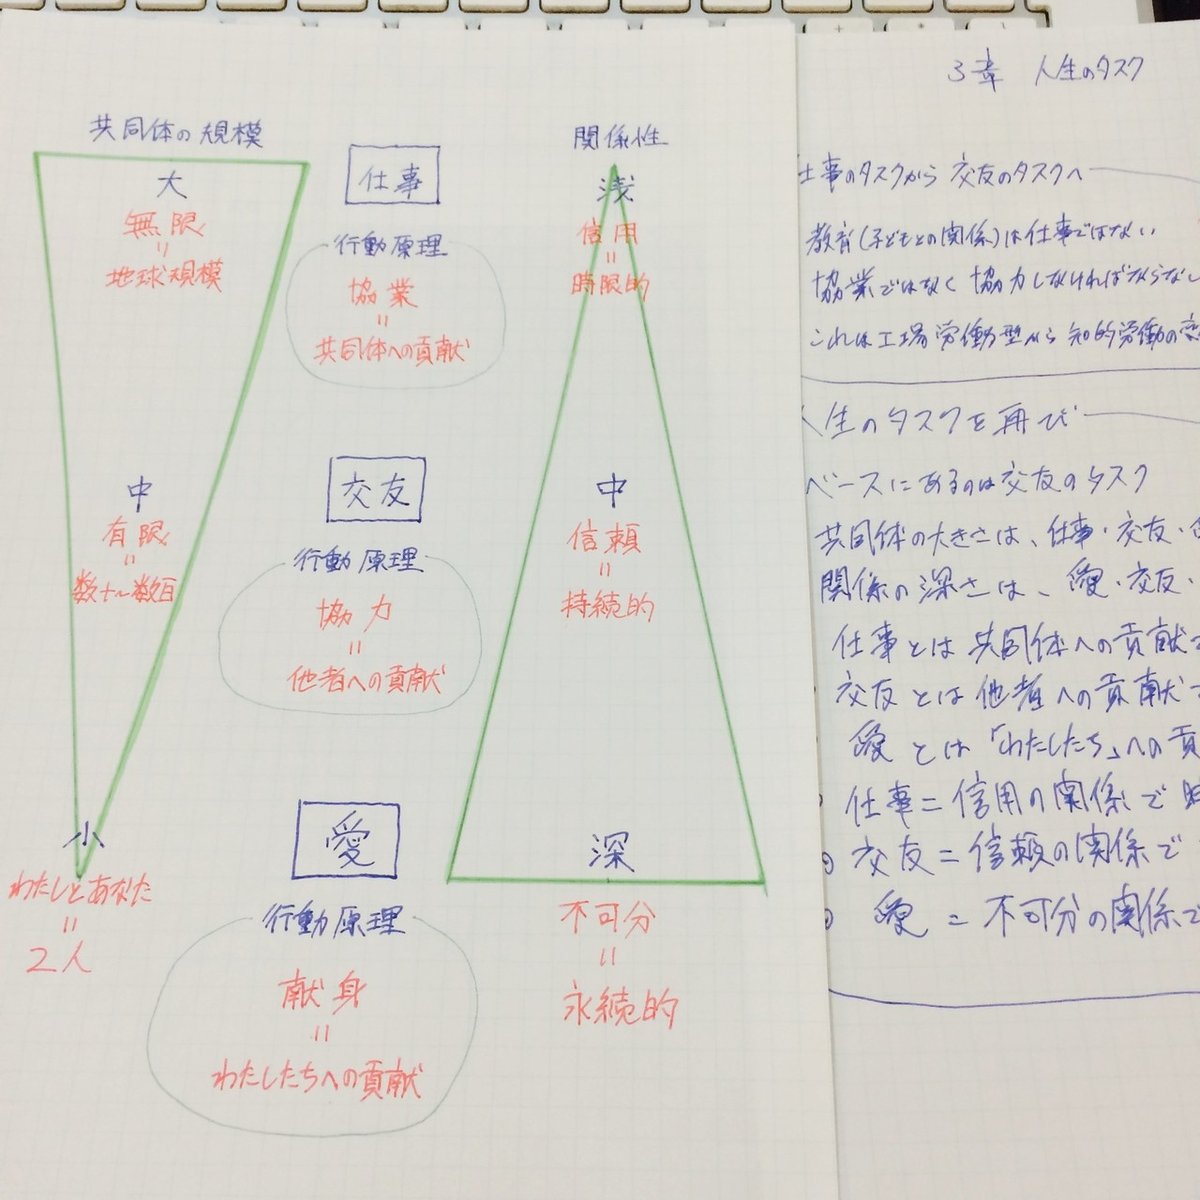 共同体の規模
大
無限
=
地球規模
中
有限
=
数十〜数百
小
わたしとあなた
=
2人
仕事
行動原理
協業
=
共同体への貢献
交友
行動原理
協力
=
他者への貢献
愛
行動原理
献身
=
わたしたちへの貢献
関係性
浅
信用
=
時限的
中
信頼
=
持続的
深
不可分
=
永続的
3章 人生のタスク
仕事のタスクから 交友のタスクへ
教育(子どもとの関係)は仕事ではない
協業ではなく 協力しなければならない
これは工場労働型から 知的労働の
人生のタスクを再び
ベースにあるのは交友のタスク
共同体の大きさは、仕事・交友・
関係の深さは、愛・交友・
仕事とは 共同体への貢献
交友とは 他者への貢献
愛とは「わたしたち」への貢
仕事=信用の関係で 時
交友=信頼の関係で
愛=不可分の関係で